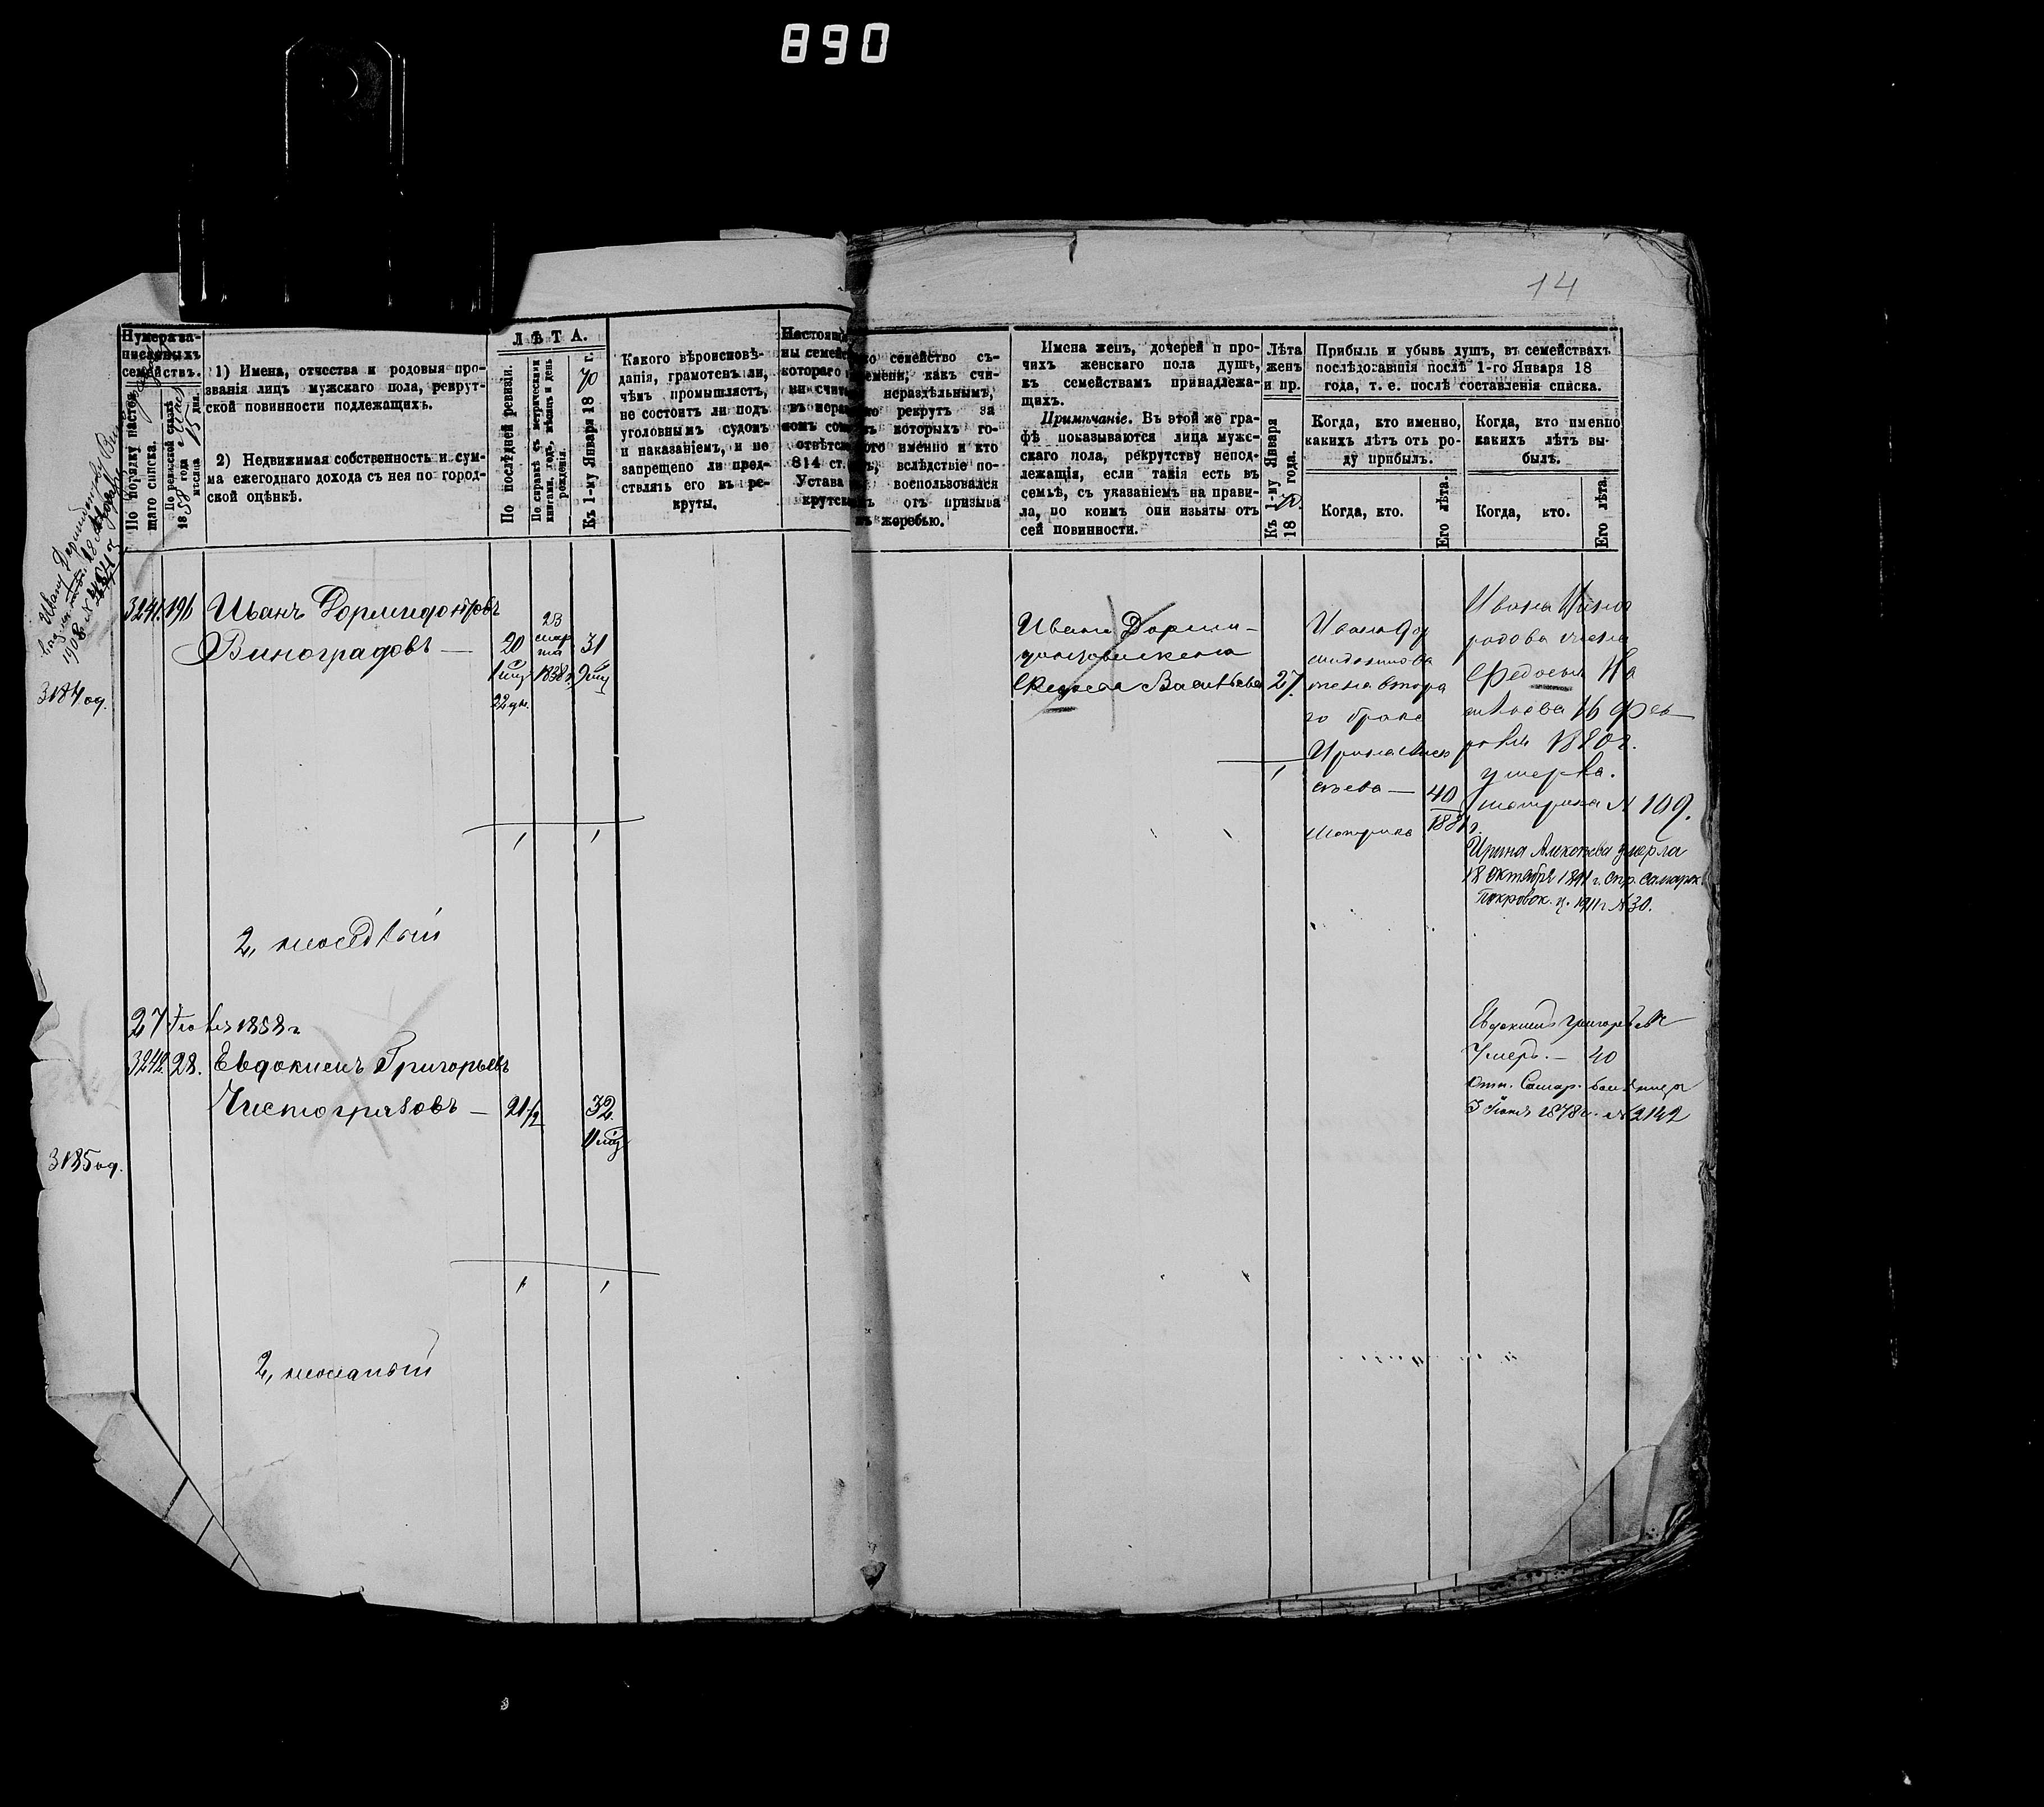 890
14
Нумера за-
писанныхъ
семействъ.
По порядку настоя-
щаго списка.
По ревизской сказкѣ
1858 года
мѣсяца 15 дня.
1) Имена, отчества и родовыя про-
званія лицъ мужскаго пола, рекрут-
ской повинности подлежащихъ.
2) Недвижимая собственность и сум-
ма ежегоднаго дохода съ нея по город-
ской оцѣнкѣ.
ЛѢТА.
По послѣдней ревизіи.
По справкѣ съ метрическими
книгами, годъ, мѣсяцъ и день
рожденія.
Къ 1-му Января 1870 г.
Какого вѣроисповѣ-
данія, грамотенъ ли,
чѣмъ промышляетъ,
не состоитъ ли подъ
уголовнымъ судомъ
и наказаніемъ, и не
запрещено ли пред-
ставлять его въ ре-
круты.
814 ст.
Устава
семейство съ-
какъ счи-
нераздѣльнымъ,
рекрутъ за
которыхъ го-
именно и кто
вслѣдствіе по-
воспользовался
отъ призыва
жеребью.
Имена женъ, дочерей и про-
чихъ женскаго пола душъ,
къ семействамъ принадлежа-
щихъ.
Примѣчаніе. Въ этой же гра-
фѣ показываются лица мужс-
скаго пола, рекрутству непод-
лежащія, если такія есть въ
семьѣ, съ указаніемъ на прави-
ла, по коимъ они изъяты отъ
сей повинности.
Лѣта
женъ
и пр.
Къ 1-му Января
1870 года.
Прибыль и убыль душъ, въ семействахъ
послѣдовавшія послѣ 1-го Января 18
года, т. е. послѣ составленія списка.
Когда, кто именно,
какихъ лѣтъ отъ ро-
ду прибылъ.
Когда, кто именно
какихъ лѣтъ вы-
былъ.
Когда, кто.
Его лѣта.
Когда, кто.
Его лѣта.
Ивану Дормидонтову
1908
3184 од.
3241. 196 Иванъ Дормидонтовъ
Виноградовъ — 20 31
1838 г.
22 дн.
Ивана Дорми-
донтова жена
Федосья Васильева 27.
Ивана Дор
мидонтова
жена второ
го брака
Ирина Алек
сѣева — 40
метрика 1881 г.
Ивана Виног
радова жена
Федосья
16 Фев
раля 1880 г.
умерла.
метрика № 109.
Ирина Алексѣева умерла
18 октября 1891 г. спр. Самарск.
Покровск. ц. 1911 г. № 30.
1 1
1
27 1858 г
3242. 28. Евдокимъ Григорьевъ
Чистогрядовъ — 21 1/2 32
11 мѣс
3185 од.
Евдокимъ Григорьевъ
Умеръ. — 40
Отн. Самар. больницы
3 1878 г. № 2142
1 1